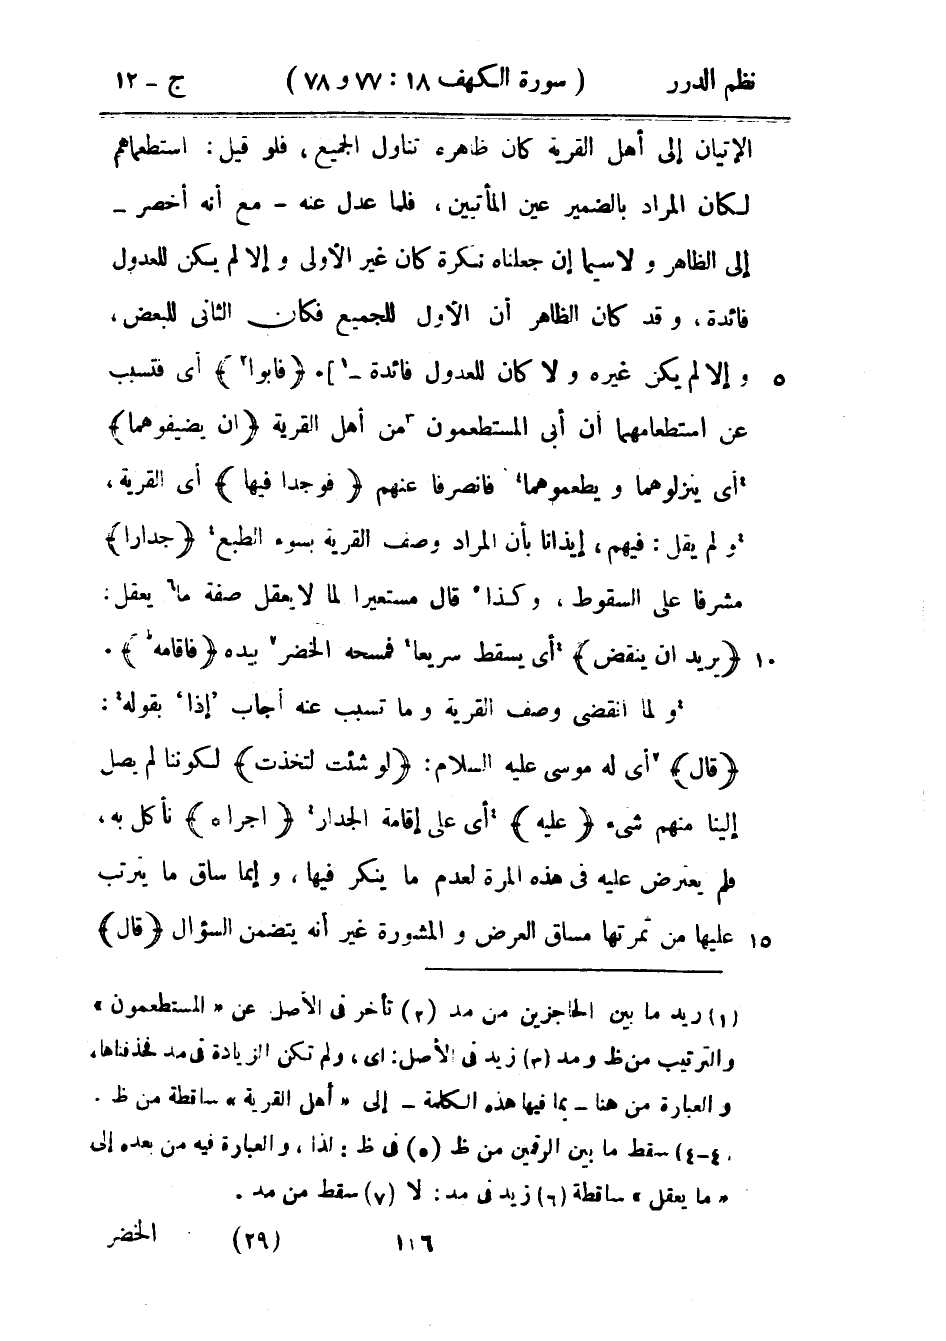 نظم الدرر ( سورة الكهف ١٨ : ٧٧ و ٧٨ ) ج - ١٢
الإتيان إلى أهل القرية كان ظاهره تناول الجميع ، فلو قيل : استطعماهم
لكان المراد بالضمير عين المأتيين ، فلما عدل عنه - مع أنه أخصر -
إلى الظاهر و لاسيما إن جعلناه نكرة كان غير الأولى و إلا لم يكن للعدول
فائدة ، و قد كان الظاهر أن الأول للجميع فكان الثانى للبعض ،
٥ و إلا لم يكن غيره و لا كان للعدول فائدة -١ ] . ﴿ فابوا٢ ﴾ أى فتسبب
عن استطعامهما أن أبى المستطعمون ٣من أهل القرية ﴿ ان يضيفوهما ﴾
٤أى ينزلوهما و يطعموهما٤ فانصرفا عنهم ﴿ فوجدا فيها ﴾ أى القرية ،
٤و لم يقل : فيهم ، إيذانا بأن المراد وصف القرية بسوء الطبع٤ ﴿ جدارا ﴾
مشرفا على السقوط ، و كذا٥ قال مستعيرا لما لايعقل صفة ما٦ يعقل :
١٠ ﴿ يريد ان ينقض ﴾ ٤أى يسقط سريعا٤ فمسحه الخضر٧ بيده ﴿ فاقامه ﴾ .
٤و لما انقضى وصف القرية و ما تسبب عنه أجاب ’إذا‘ بقوله٤ :
﴿ قال ﴾ ٢أى له موسى عليه السلام : ﴿ لو شئت لتخذت ﴾ لكوننا لم يصل
إلينا منهم شىء ﴿ عليه ﴾ ٤أى على إقامة الجدار٤ ﴿ اجرا ه ﴾ نأكل به ،
فلم يعترض عليه فى هذه المرة لعدم ما ينكر فيها ، و إنما ساق ما يترتب
١٥ عليها من ثمرتها مساق العرض و المشورة غير أنه يتضمن السؤال ﴿ قال ﴾
(١) زيد ما بين الحاجزين من مد (٢) تأخر فى الأصل عن « المستطعمون »
و الترتيب من ظ و مد (٣) زيد فى الأصل : اى ، ولم تكن الزيادة فى مد فحذفناها ،
و العبارة من هنا - بما فيها هذه الكلمة - إلى « أهل القرية » ساقطة من ظ .
(٤-٤) سقط ما بين الرقمين من ظ (٥) فى ظ : لذا ، و العبارة فيه من بعده إلى
« ما يعقل » ساقطة (٦) زيد فى مد : لا (٧) سقط من مد .
١١٦ (٢٩) الخضر